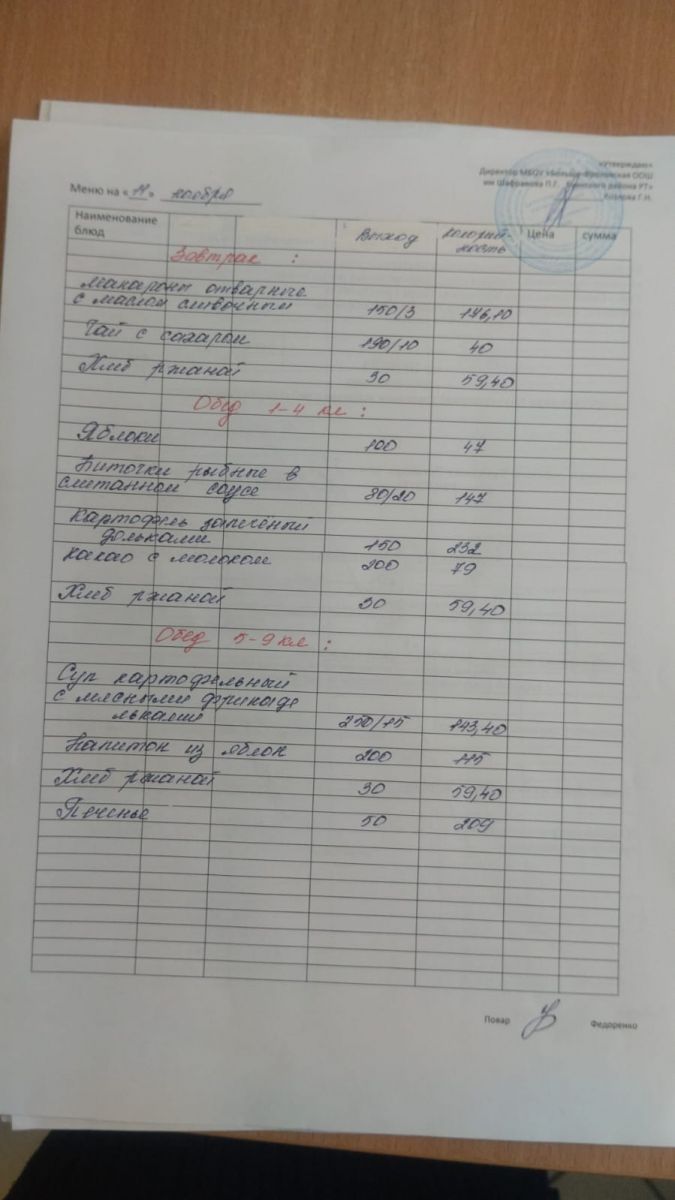 «Утверждаю»
Директор МБОУ «Больше-Фроловская ООШ
им Шафранова П.Г. района РТ»
Козлова Г.Н.
Меню на « 11 » ноября
Наименование блюд Выход калорий- Цена сумма
ность
Завтрак :
Макароны отварные
с маслом сливочным 150/3 176,10
Чай с сахаром 190/10 40
Хлеб ржаной 30 59,40
Обед 1-4 кл :
Яблоки 100 47
Биточки рыбные в
сметанном соусе 80/20 147
Картофель запечёный
дольками 150 232
Какао с молоком 200 79
Хлеб ржаной 30 59,40
Обед 5-9 кл :
Суп картофельный
с мясными фрикаде
льками 250/15 143,40
Напиток из яблок 200 115
Хлеб ржаной 30 59,40
Печенье 50 209
Повар Федоренко